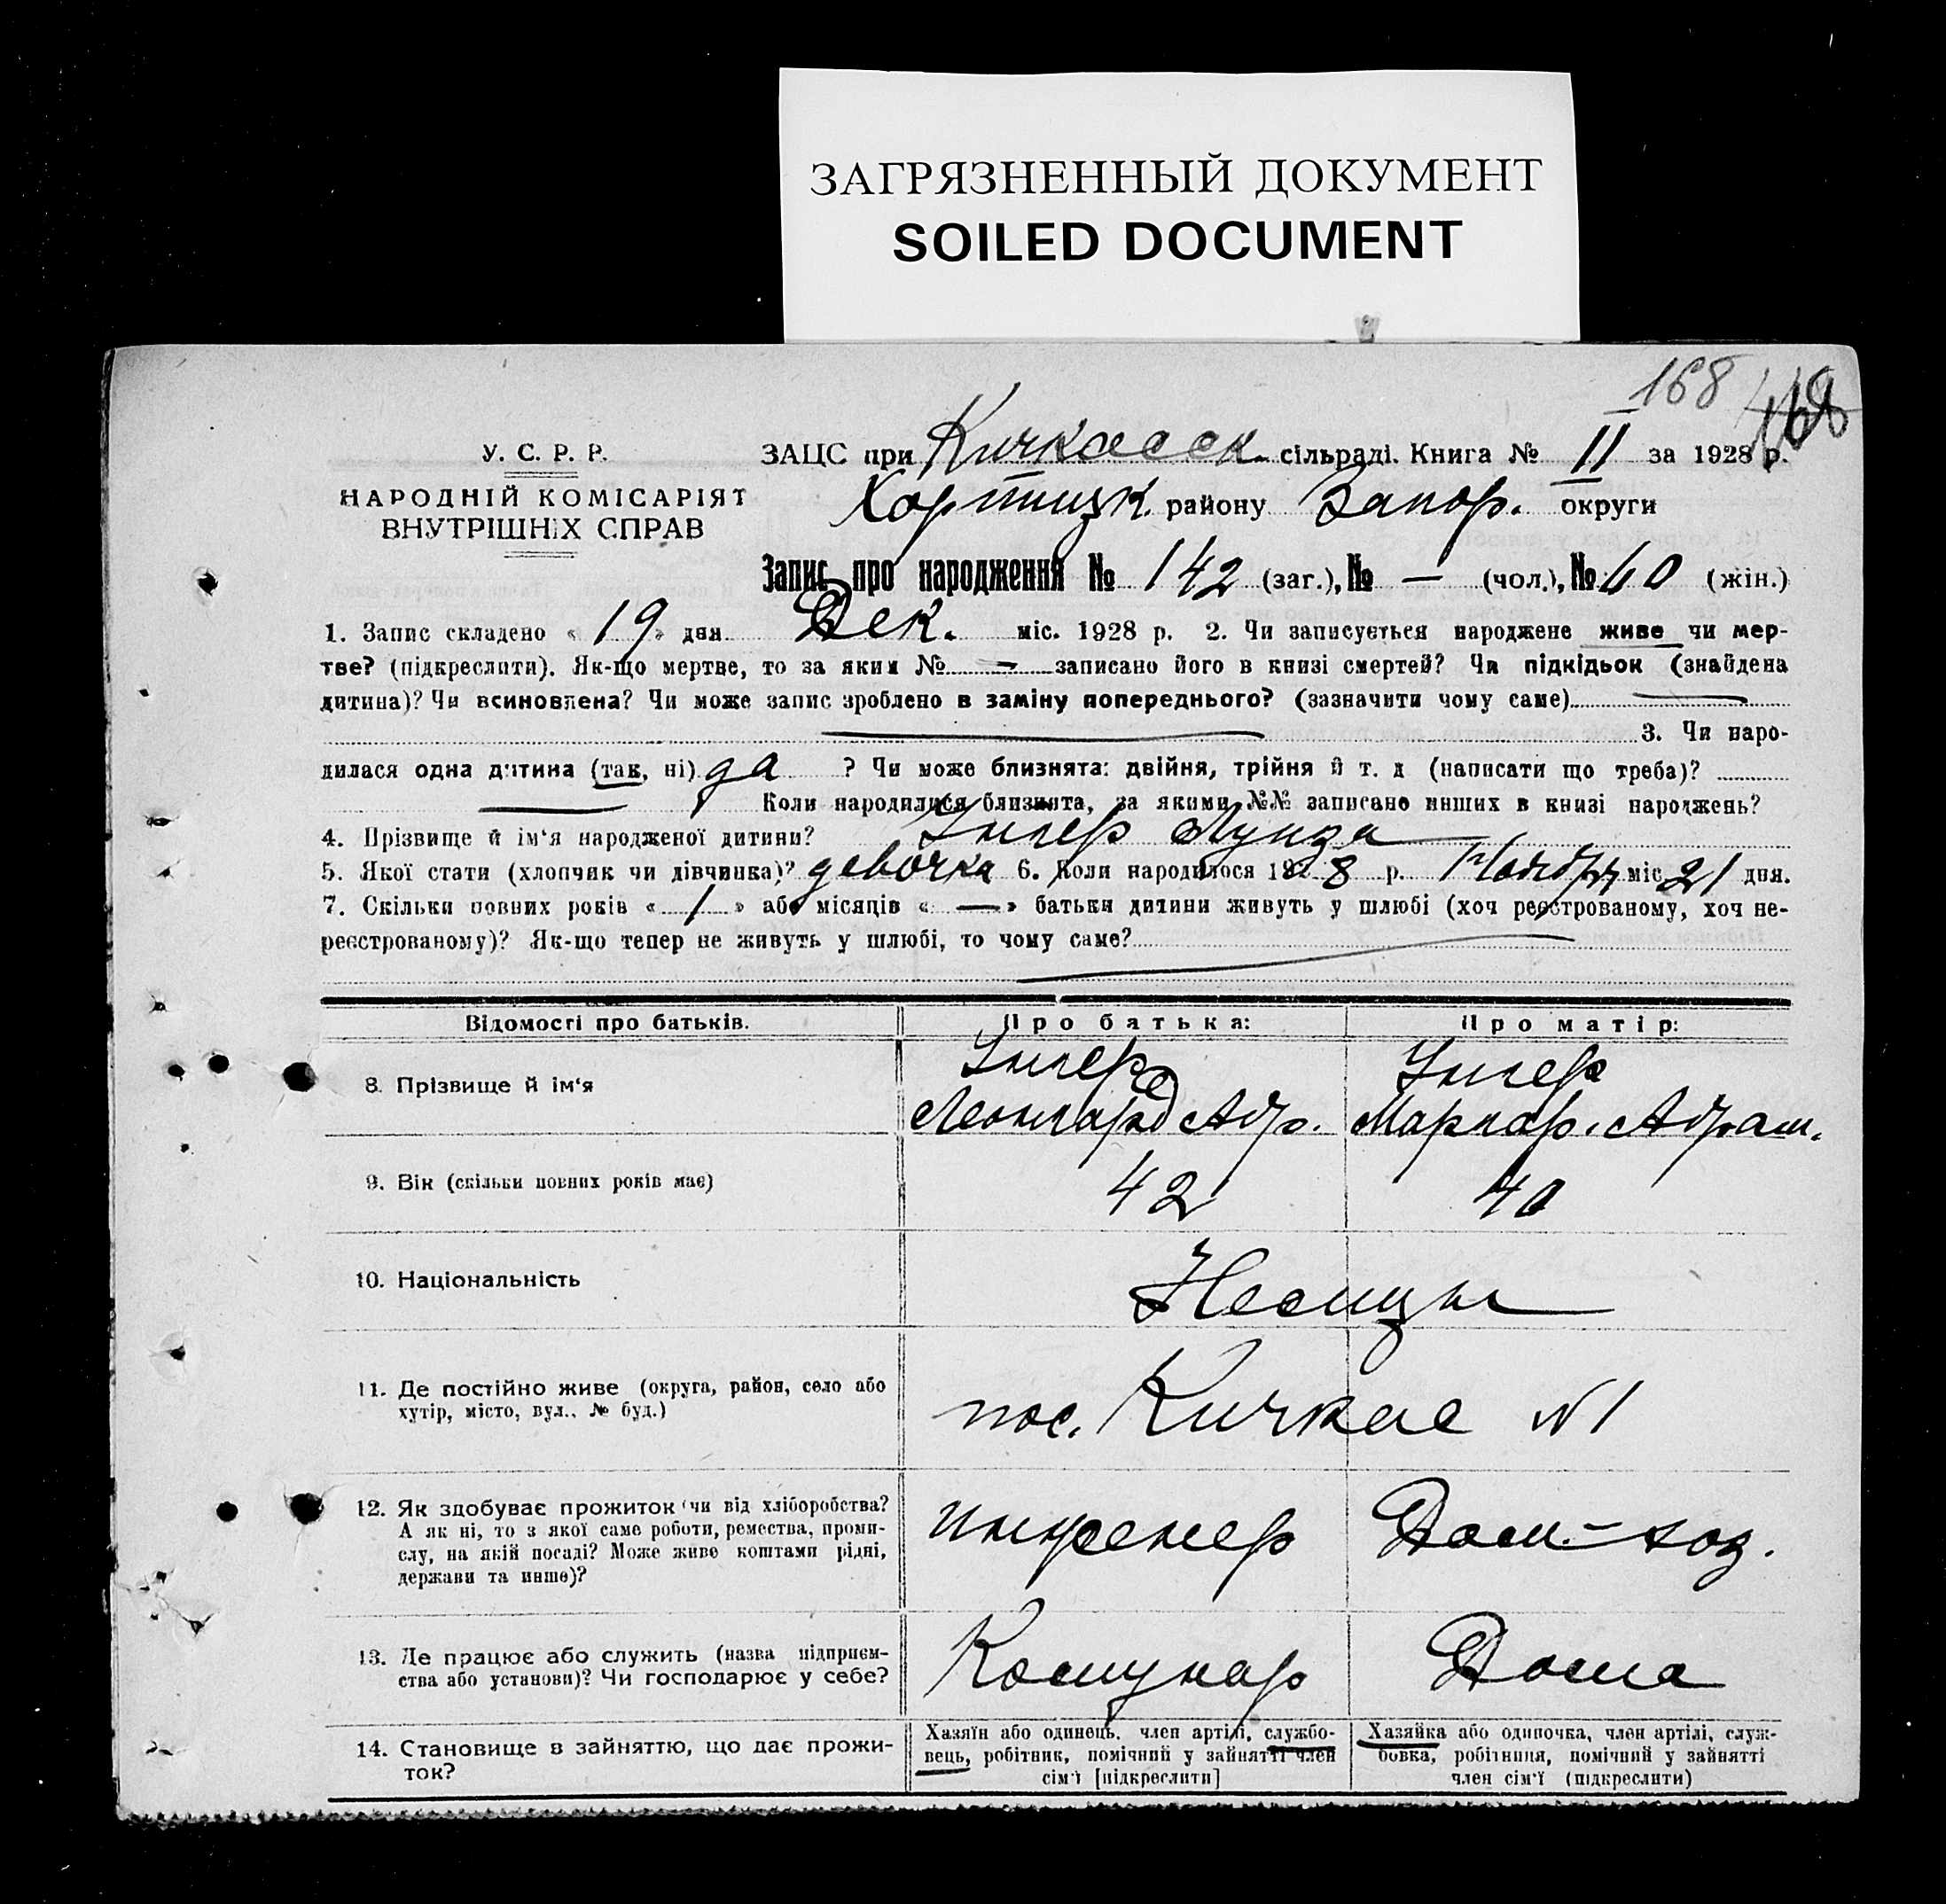 ЗАГРЯЗНЕННЫЙ ДОКУМЕНТ
SOILED DOCUMENT
168
У. С. Р. Р.
НАРОДНІЙ КОМІСАРІЯТ
ВНУТРІШНІХ СПРАВ
ЗАЦС при Кичкасск. сільраді. Книга № II за 1928 р.
Хортицк. району Запор. округи
Запис про народження № 142 (заг.), № — (чол.), № 60 (жін.)
1. Запис складено « 19 » дня Дек. міс. 1928 р. 2. Чи записується народжене живе чи мер-
тве? (підкреслити). Як-що мертве, то за яким № — записано його в книзі смертей? Чи підкідьок (знайдена
дитина)? Чи всиновлена? Чи може запис зроблено в заміну попереднього? (зазначити чому саме) —
3. Чи наро-
дилася одна дитина (так, ні) да ? Чи може близнята: двійня, трійня й т. д (написати що треба)?
— Коли народилися близнята, за якими №№ записано инших в книзі народжень?
4. Прізвище й ім‘я народженої дитини? Унгер Луиза
5. Якої стати (хлопчик чи дівчинка)? девочка 6. Коли народилося 1928 р. Ноябрь міс. 21 дня.
7. Скільки повних років « 1 » або місяців « — » батьки дитини живуть у шлюбі (хоч реєстрованому, хоч не-
реєстрованому)? Як-що тепер не живуть у шлюбі, то чому саме? —
Відомості про батьків. Про батька: Про матір:
8. Прізвище й ім‘я Унгер Леонгард Абр. Унгер Маргар. Абрам.
9. Вік (скільки повних років має) 42 40
10. Національність Немцы
11. Де постійно живе (округа, район, село або
хутір, місто, вул., № буд.) пос. Кичкас №1
12. Як здобуває прожиток (чи від хліборобства?
А як ні, то з якої саме роботи, ремества, проми-
слу, на якій посаді? Може живе коштами рідні,
держави та инше)? инженер Дом.-хоз.
13. Де працює або служить (назва підприєм-
ства або установи)? Чи господарює у себе? Комунар Дома
14. Становище в зайняттю, що дає прожи-
ток?
Хазяїн або одинець, член артілі, службо-
вець, робітник, помічний у зайнятті член
сім‘ї [підкреслити]
Хазяйка або одиночка, член артілі, служ-
бовка, робітниця, помічний у зайнятті
член сім‘ї (підкреслити)